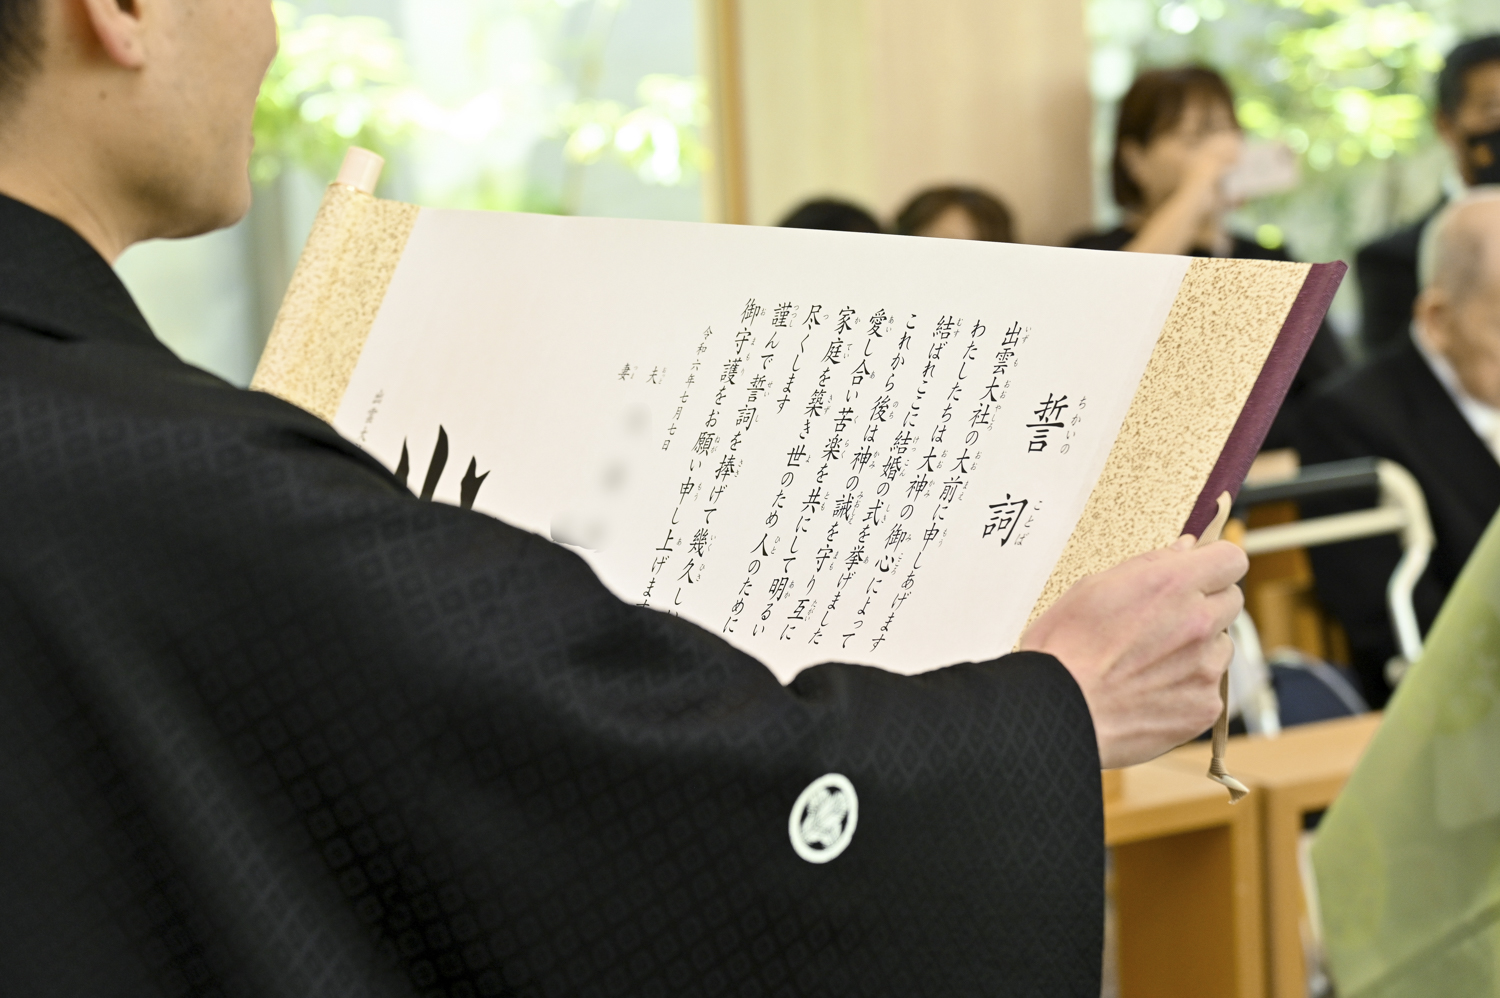 誓詞
ちかいの ことば
出雲大社の大前に申しあげます
わたしたちは大神の御心によって
結ばれここに結婚の式を挙げました
これから後は神の誡を守り互に
愛し合い苦楽を共にして明るい
家庭を築き世のため人のために
尽くします
謹んで誓詞を捧げて幾久しい
御守護をお願い申し上げます
令和六年七月七日
夫
妻
出雲大